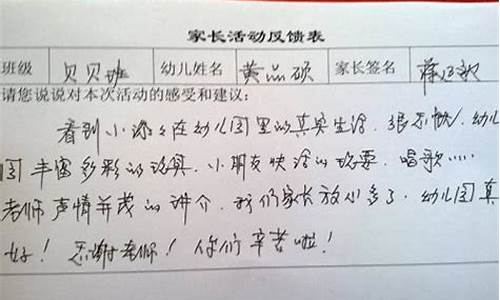 家长活动反馈表
班级 贝贝班 幼儿姓名 黄品硕 家长签名
请您说说对本次活动的感受和建议:
看到小添々在幼儿园里的真实生活.很不错/.幼儿
园丰富多彩的玩具.小朋友快活的玩耍.唱歌……
老师声情并茂的讲介.我们家长放心多了.幼儿园真
好!感谢老师!你们辛苦啦!